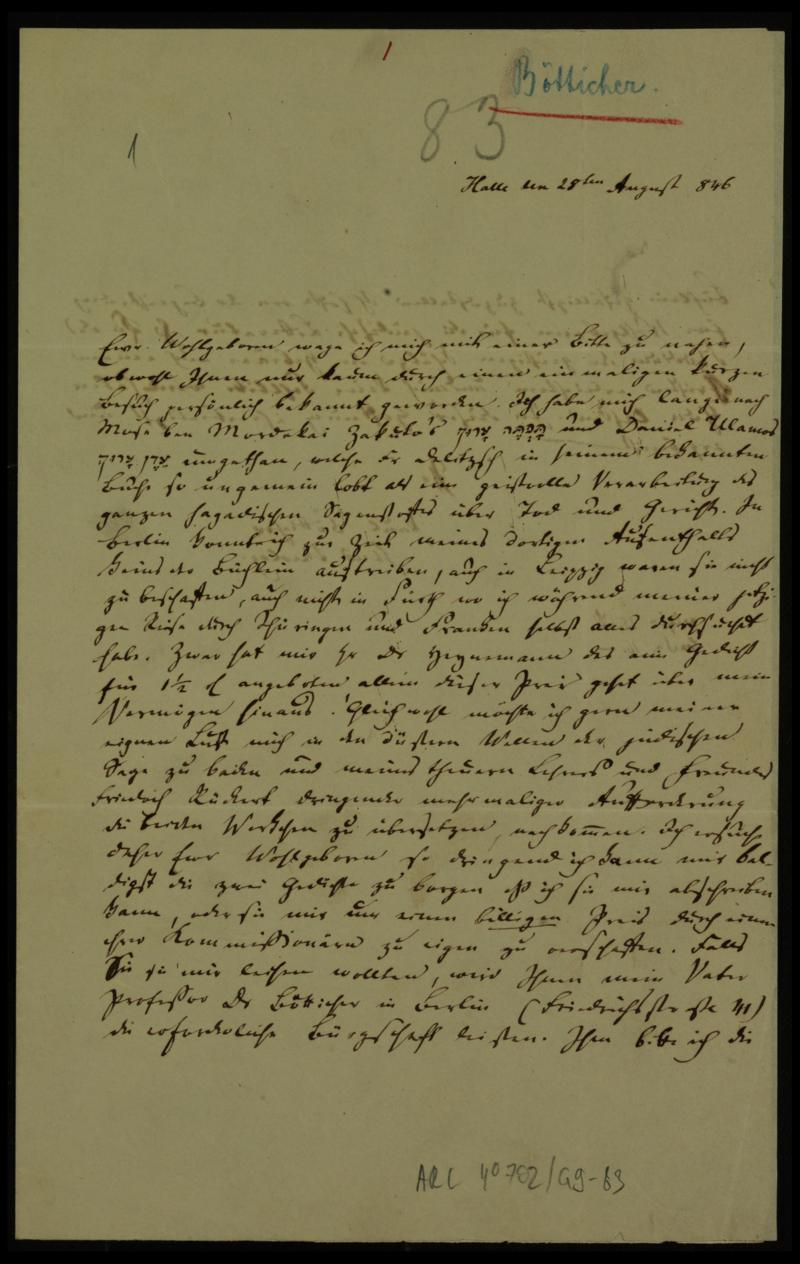 1
Bötticher.
83
1
Halle den 28sten August 846
Ewr. Wohlgeboren wage ich mich mit einer Bitte zu nahen,
obwohl Ihnen nur kaum durch einen einmaligen kurzen
Besuch persönlich bekannt geworden. Ich habe mich lange nach
Mose ben Mordekai Zakuto's ערוך und Daniel Ulamos
ערוך umgethan, welche Dr Delitzsch in seinem bekannten
Buche so ungemein lobt als eine geistvolle Verarbeitung des
ganzen hagadischen Sagenstoffes über Tod und Gericht. In
Berlin konnte ich zur Zeit meines dortigen Aufenthalts
keins der Büchlein auftreiben, auch in Leipzig waren sie nicht
zu beschaffen, auch nicht in Fürth wo ich während meiner jetzi-
gen Reise durch Thüringen und Franken selbst alles durchsucht
habe. Zwar hat mir Hr Dr Heynemann das eine Gedicht
für 1½ angeboten allein dieser Preis geht über mein
Vermögen hinaus. Gleichwohl möchte ich gern meiner
eignen Lust mich in den düstern Wellen der jüdischen
Sage zu baden und meines theuern Lehrers und Freundes
Friedrich Rückert dringender mehrmaliger Aufforderung
die beiden Werkchen zu übersetzen, nachkommen. Ich ersuche
daher Ewr Wohlgeboren so dringend ich kann mir bal-
digst die zwei Gedichte zu borgen daß ich sie mir abschreiben
kann, oder sie mir um einen billigen Preis durch einen
ihrer Kommissionäre zu eigen zu verschaffen. Falls
Sie sie mir leihen wollten, wird Ihnen mein Vater
Professor Dr Bötticher in Berlin (Friedrichsstrasse 41)
die erforderliche Bürgschaft leisten. Ihn bitte ich die
ARC 4° 792/G9-63